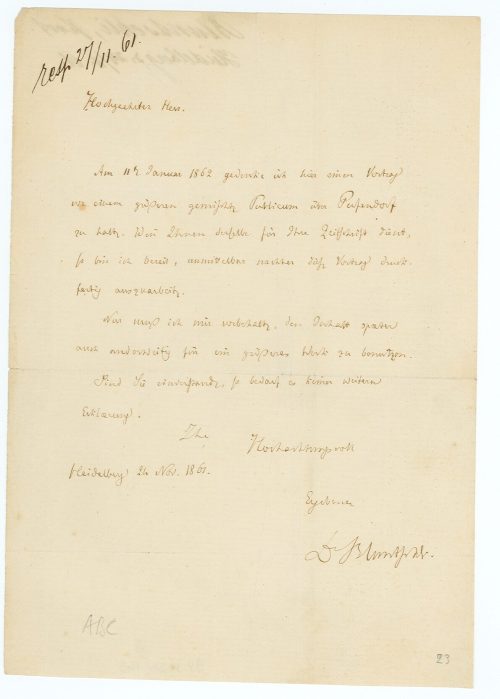 resp. 27/11. 61.
Hochgeehrter Herr.
Am 11t. Januar 1862 gedenke ich hier einen Vortrag
vor einem größeren gemischten Publicum über Pufendorf
zu halten. Wenn Ihnen derselbe für Ihre Zeitschrift dient,
so bin ich bereit, unmittelbar nachher den Vortrag druck-
fertig auszuarbeiten.
Nur muß ich mir vorbehalten, den Inhalt später
auch anderweitig für ein größeres Werk zu benutzen.
Sind Sie einverstanden, so bedarf es keiner weitern
Erklärung.
Ihr
Hochachtungsvoll
Heidelberg 24 Nov. 1861.
Ergebener
Dr Bluntschli.
ABC
23